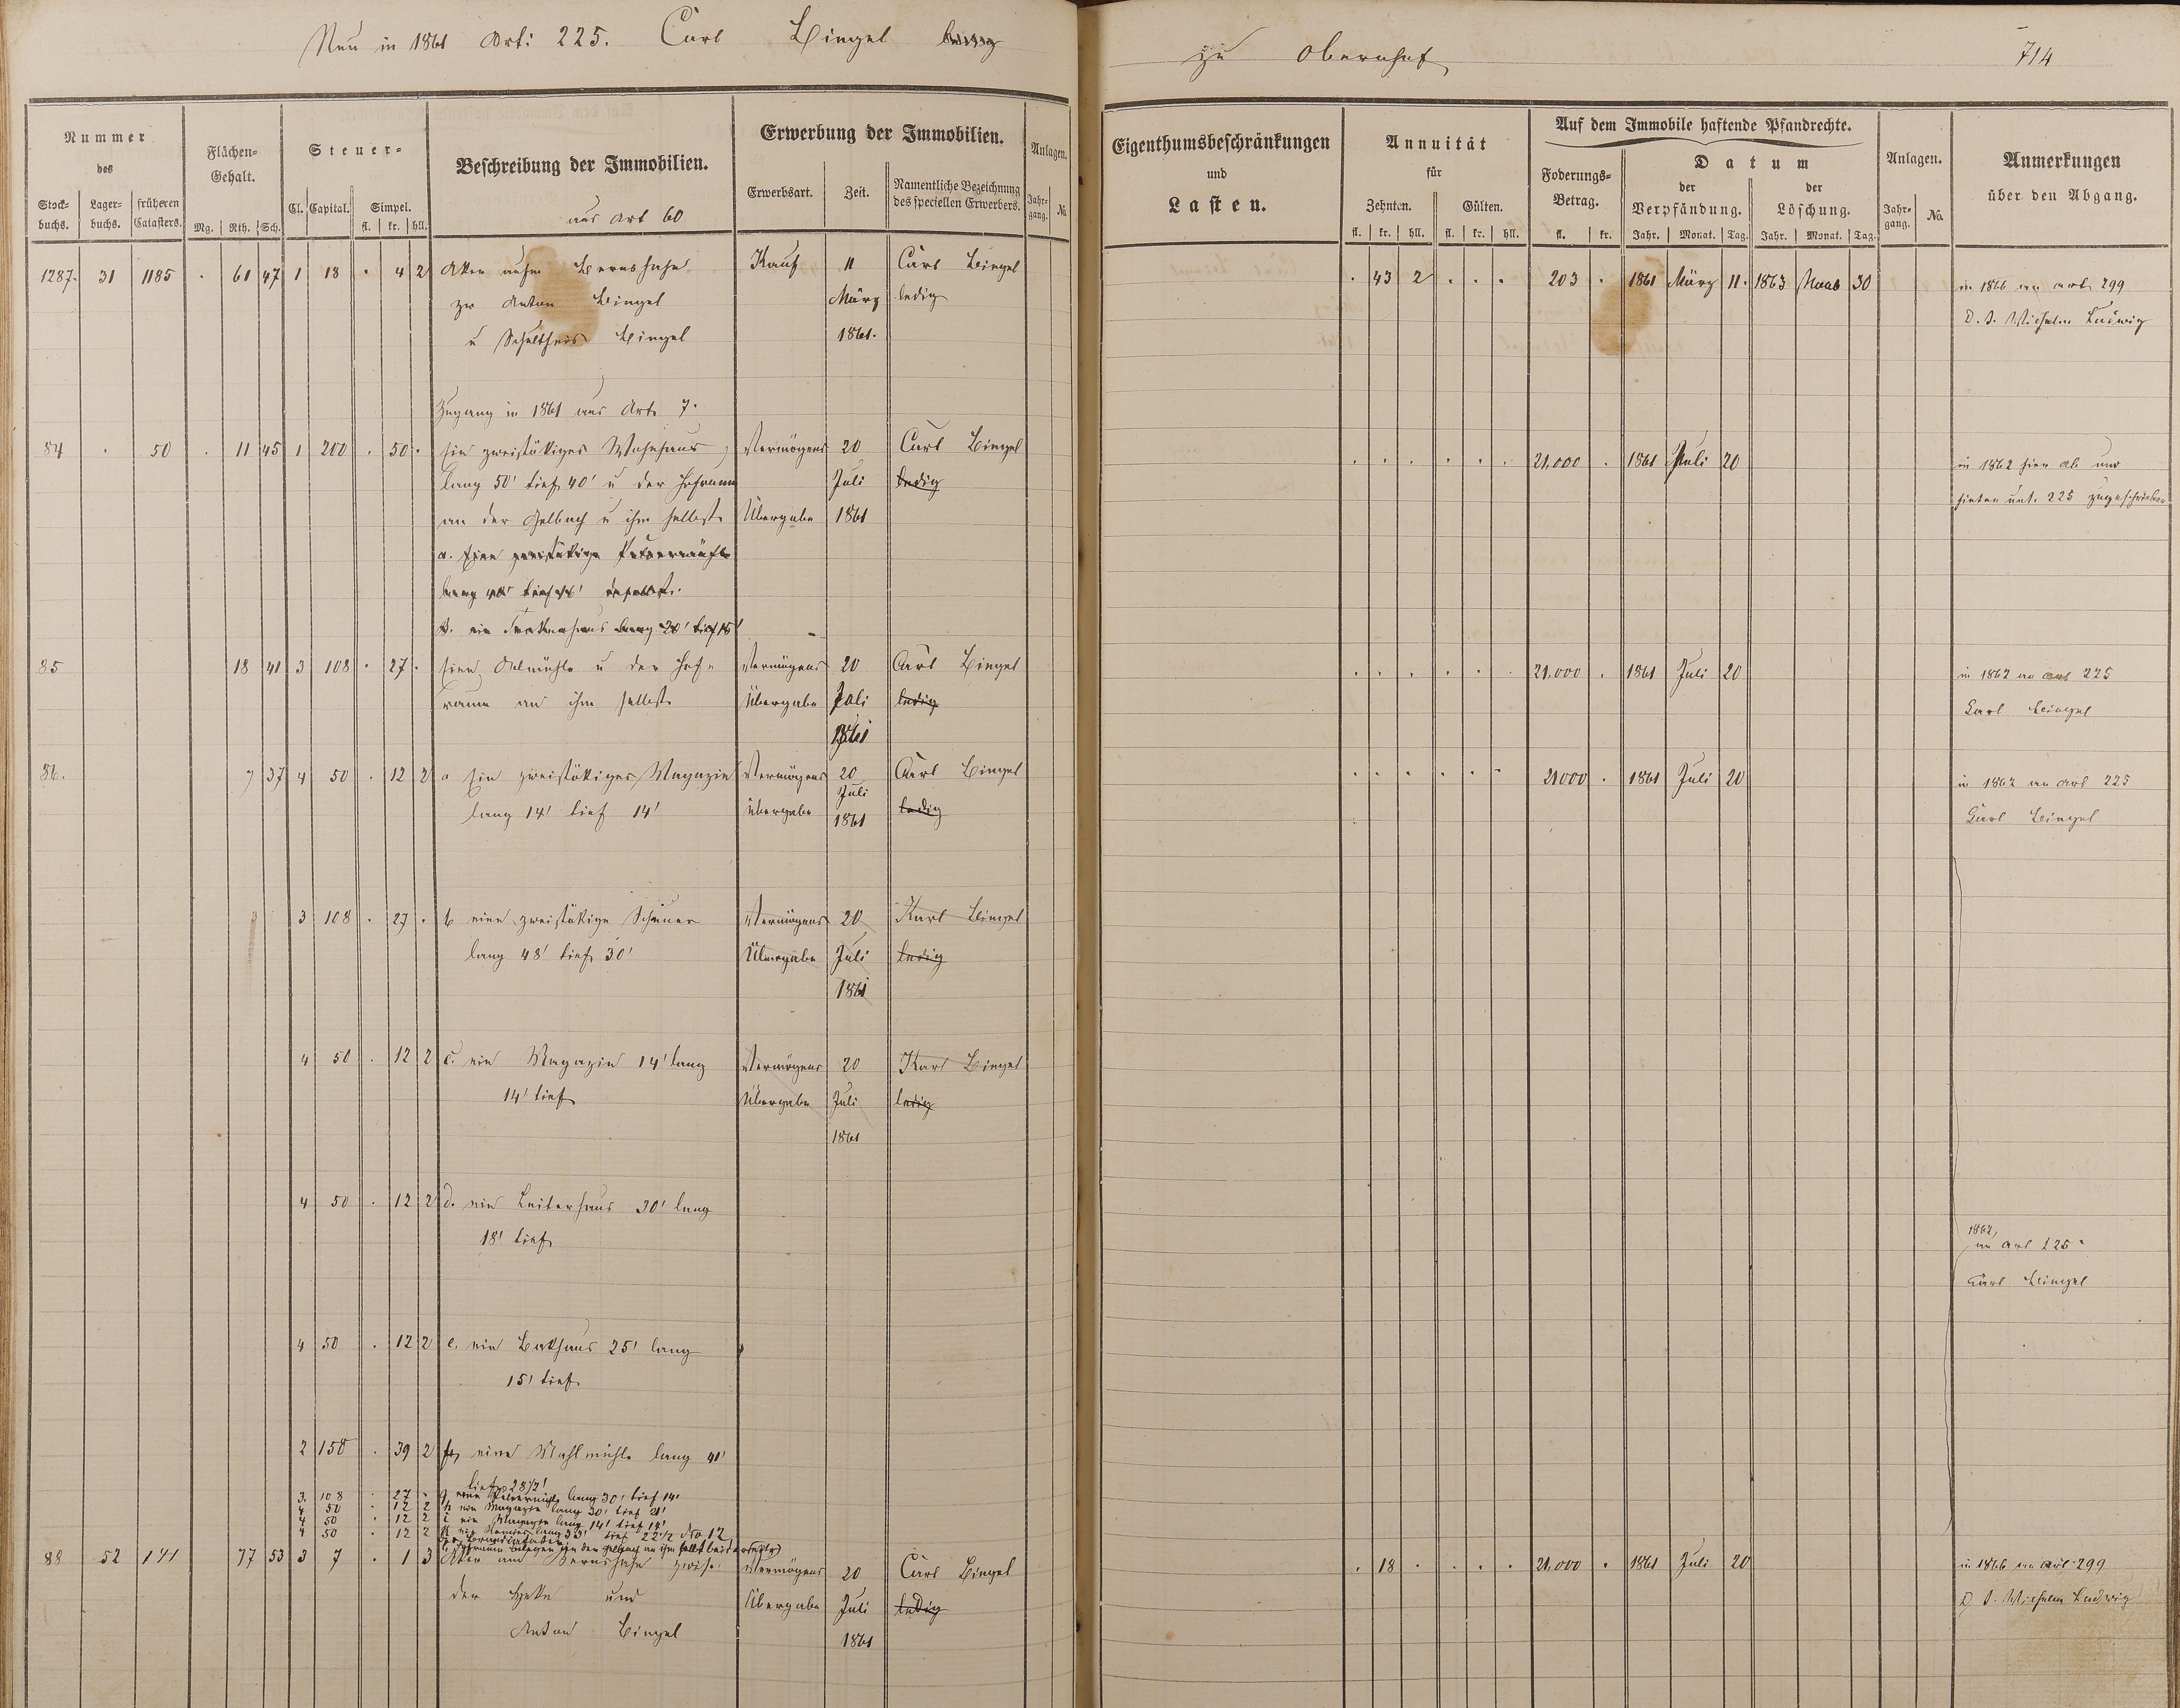 Neu in 1861 Art: 225. Carl Bingel ledig
zu Obernhof
714
Nummer
des
Stock-
buchs.
Lager-
buchs.
früheren
Catasters.
Flächen-
Gehalt.
Mg. Rth. Sch.
Steuer-
Cl. Capital. Simpel.
fl. kr. hll.
Beschreibung der Immobilien.
aus Art 60
Erwerbung der Immobilien.
Erwerbsart. Zeit. Namentliche Bezeichnung
des speciellen Erwerbers.
Anlagen.
Jahr-
gang. No
Eigenthumsbeschränkungen
und
Lasten.
Annuität
für
Zehnten. Gülten.
fl. kr. hll. fl. kr. hll.
Auf dem Immobile haftende Pfandrechte.
Foderungs-
Betrag.
fl. kr.
Datum
der der
Verpfändung. Löschung.
Jahr. Monat. Tag. Jahr. Monat. Tag.
Anlagen.
Jahr-
gang. No.
Anmerkungen
über den Abgang.
1287. 31 1185 . 61 47 1 18 . 4 2 Aker Kauf 11 Carl Bingel . 43 2 . . . 203 . 1861 März 11. 1863 30 in 1866 an art. 299
zw Anton Bingel März ledig D. J. Wilhelm Ludwig
u Schultheis Bingel 1861.
Zugang in 1861 aus Art. 7.
84 . 50 . 11 45 1 200 . 50 . Ein zweistökiges Wohnhaus Vermögens 20 Carl Bingel . . . . . . 21,000 . 1861 Juli 20 in 1862 hier ab und
lang 50' tief 40' u der Hofraum Juli ledig hinten unt. 225 zugeschrieben
an der Gelbach u ihm selbst. Übergabe 1861
a. Eine zweistökige
lang tief daselbst.
b. ein lang 20' tief 15'
85 18 41 3 108 . 27 . Eine Oelmühle u der Hof- Vermögens 20 Carl Bingel . . . . . . 21.000 . 1861 Juli 20 in 1862 an art 225
raum an ihm selbst Übergabe Juli ledig Carl Bingel
1861
86. 7 37 4 50 . 12 2 a Ein zweistökiges Magazin Vermögens 20 Carl Bingel . . . . . . 21000 . 1861 Juli 20 in 1862 an art 225
lang 14' tief 14' übergabe Juli ledig Carl Bingel
1861
3 108 . 27 . b eine zweistökige Scheuer Vermögens 20 Karl Bingel
lang 48' tief 30' Übergabe Juli ledig
1861
4 50 . 12 2 c. ein Magazin 14' lang Vermögens 20 Karl Bingel
14' tief Übergabe Juli ledig
1861
4 50 . 12 2 d. ein 30' lang
18' tief
1862,
an art 225
Carl Bingel
4 50 . 12 2 e. ein Bakhaus 25' lang
15' tief
2 158 . 39 2 f, eine Mahlmühle lang 41'
tief 28 1/2'
3. 108 . 27 . g eine lang 30' tief 14'
4 50 . 12 2 h ein Magazin lang 30' tief 21'
4 50 . 12 2 i ein Magazin lang 14' tief 14'
4 50 . 12 2 k ein lang 33' tief 22 1/2 No 12
88 52 141 77 53 3 7 . 1 3 Aker am zwisc. Vermögens 20 Carl Bingel . 18 . . . . 21.000 . 1861 Juli 20 in 1866 an art 299
der Heke und Übergabe Juli ledig D. J. Wilhelm Ludwig
Anton Bingel 1861